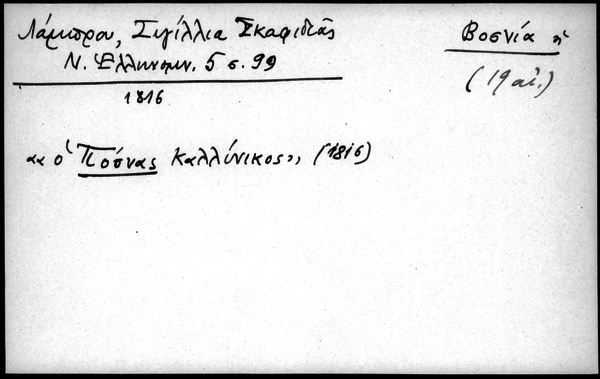 Λάμπρου, Σιγίλλια Σκαφιδιᾶς
Ν. Ἑλληνομν. 5 σ. 99
1816
Βοσνία ἡ
(19 αἰ.)
«ὁ Πόσνας Καλλίνικος» (1816)